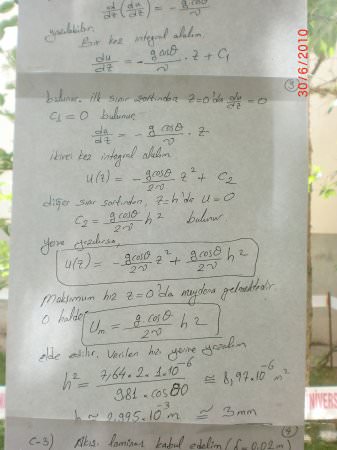 d/dz (du/dz) = - g cosθ/ν
yazılabilir.
Bir kez integral alalım
du/dz = - g cosθ/ν . z + C₁
30/6/2010
(3)
bulunur. ilk sınır şartından z=0'da du/dz = 0
C₁ = 0 bulunur
du/dz = - g cosθ/ν . z
ikinci kez integral alalım
u(z) = - g cosθ/2ν z² + C₂
diğer sınır şartından, z=h'da u = 0
C₂ = g cosθ/2ν h² bulunur.
yerine yazılırsa,
u(z) = - g cosθ/2ν z² + g cosθ/2ν h²
Maksimum hız z=0'da meydana gelmektedir.
O halde
Uₘ = g cosθ/2ν h²
elde edilir. Verilen hızı yerine yazalım
h² = 7,64.2.1.10⁻⁶/9.81.cos80 ≅ 8,97.10⁻⁶ m²
h ≈ 2,995.10⁻³ m ≅ 3mm
(4)
C-3) Akış laminer kabul edelim
ÜNİVERS